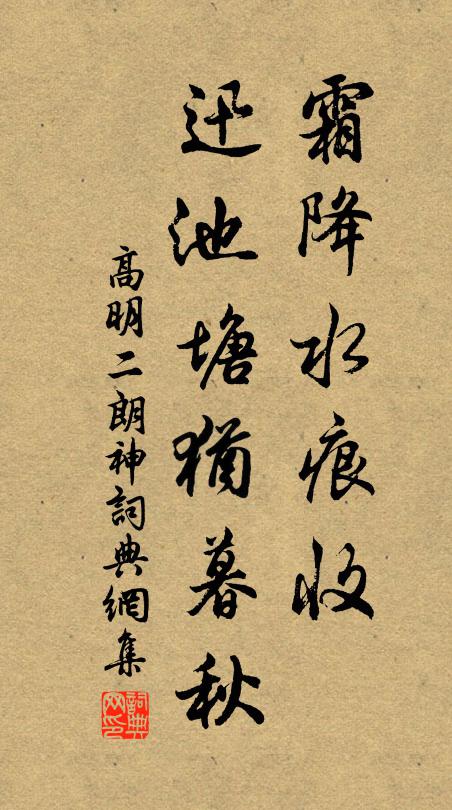 霜降水痕收
迅池塘猶暮秋
高明二朗神詞典網集
詞典网印